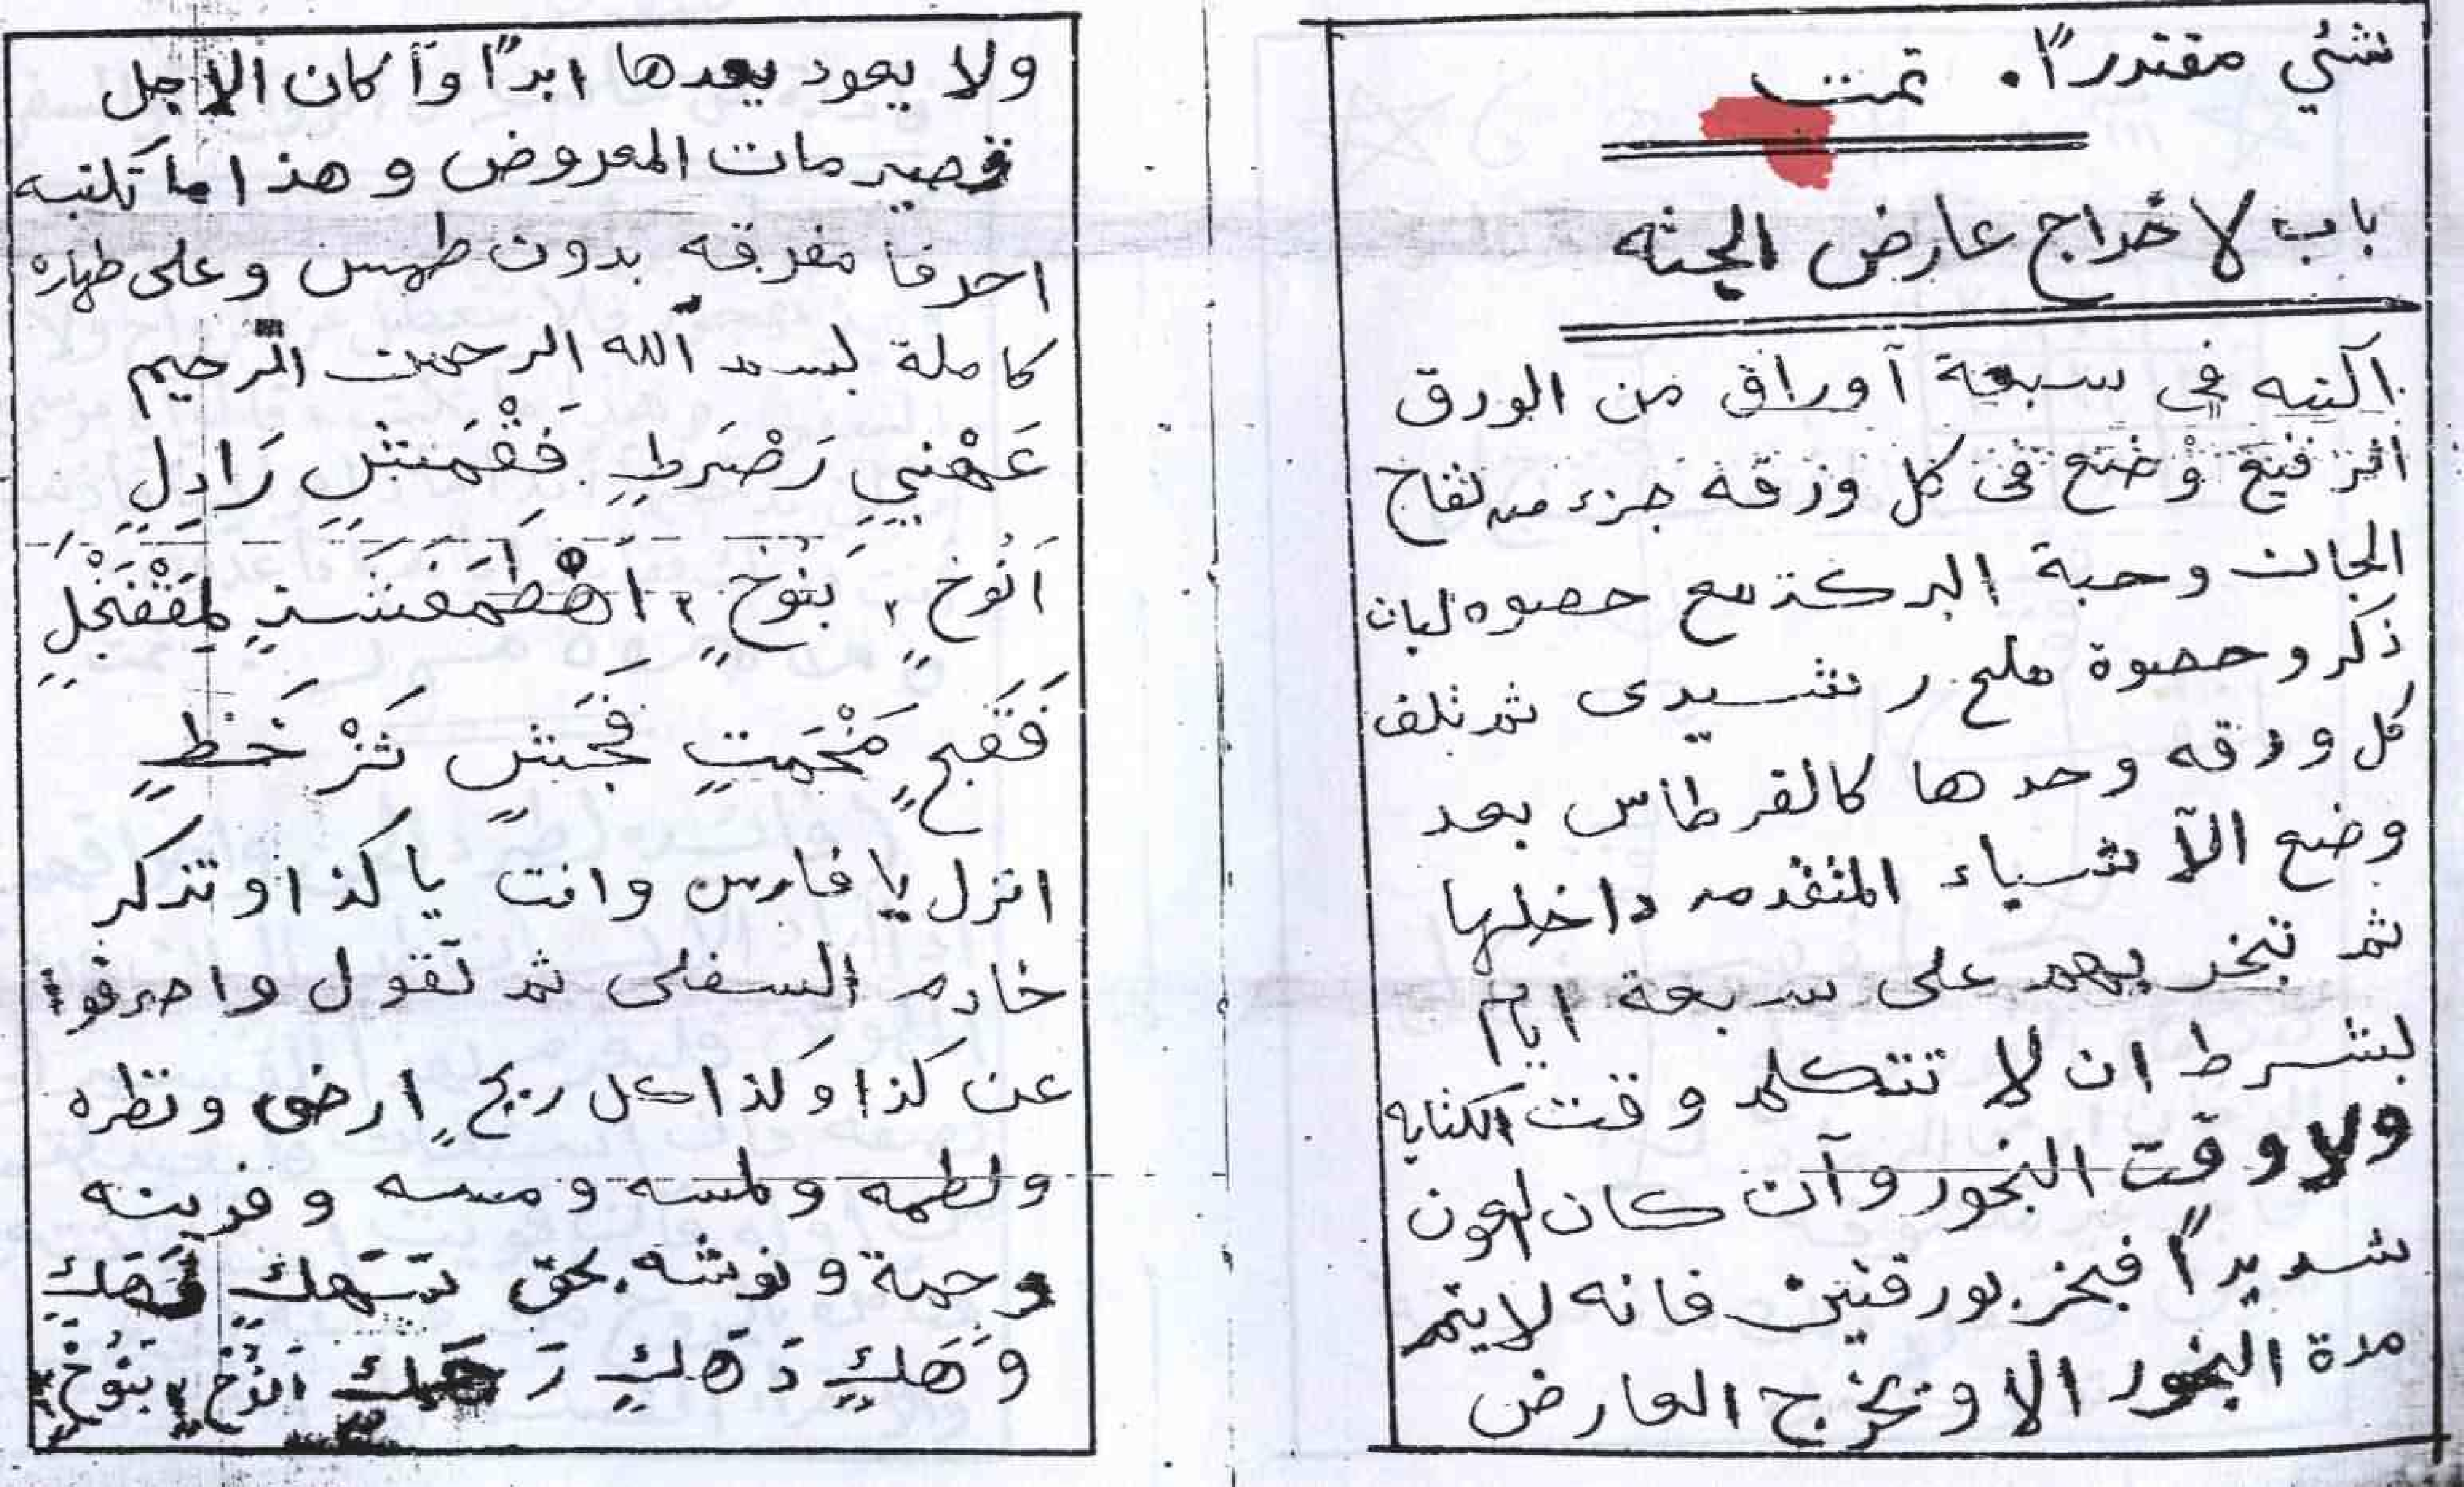 شئي مقتدراً. تمت
باب لاخراج عارض الجثه
اكتبه في سبعة أوراق من الورق
الرفيع وضع في كل ورقة جزء من تفاح
الجان وحبة البركة مع حصوه لبان
ذكر وحصوة ملح رشيدى ثم تلف
كل ورقه وحدها كالقرطاس بعد
وضع الأشياء المتقدمه داخلها
ثم تبخر بهم على سبعة ايام
بشرط ان لا تتكلم وقت الكتابه
ولا وقت البخور وآن كان العون
شديداً فبخر بورقتين فانه لايتم
مدة البخور الا وتخرج العارض
ولا يعود بعدها ابداً وأ كان الاجل
قصير مات المعروض وهذا ما تكتبه
احرفاً مفرقه بدون طمس وعلى طهاره
كاملة بسم الله الرحمن الرحيم
عَهْنِي رَصْرَطٍ فَقْمَشٍ رَادِلٍ
اَنُوخٍ، بَنُوخٍ،
فَقَبحٍ مَخْمَتٍ فَجَشٍ ثَزْ خَظٍ
انزل يا فارس وانت يا كذا وتذكر
خادم السفلى ثم تقول واصرفوا
عن كذا وكذا كل ريحٍ ارضى ونظره
ولطمه ولمسه ومسه وقرينه
وحمة وتوشه بحق
وَهَكٍ دَهَكٍ اَنُوخٍ بَنُوخٍ